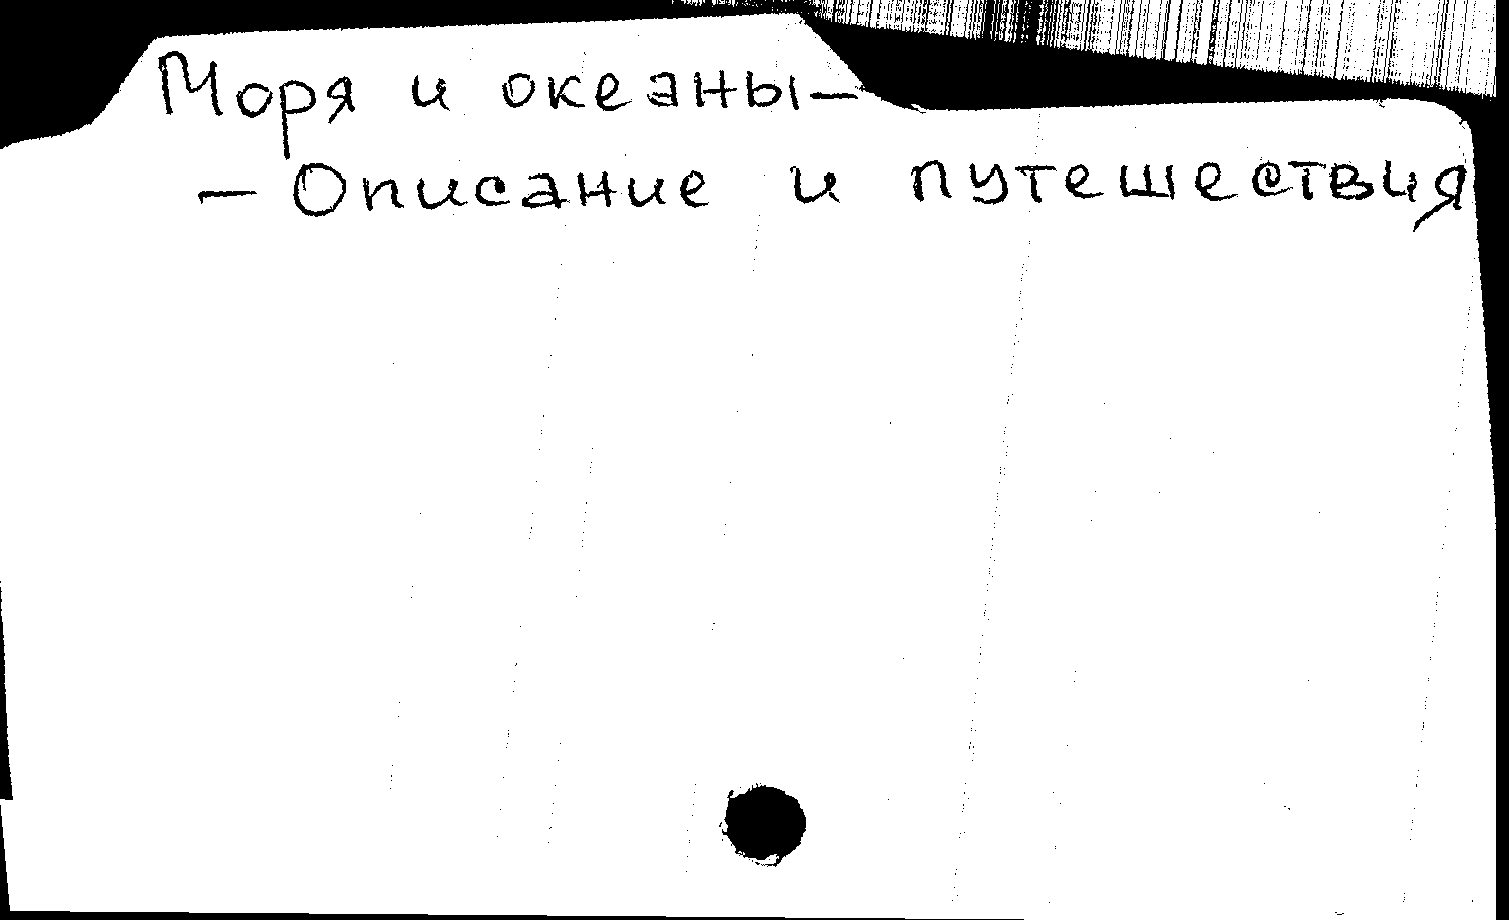 Моря и океаны–
– Описание и путешествия